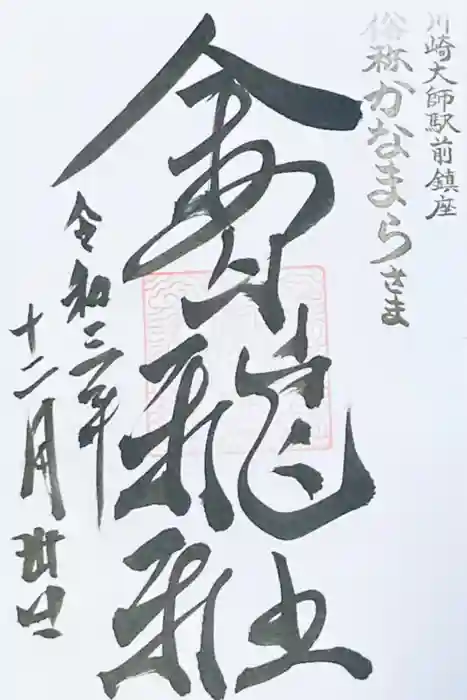 川崎大師駅前鎮座
俗称かなまらさま
金山神社
令和三年
十二月